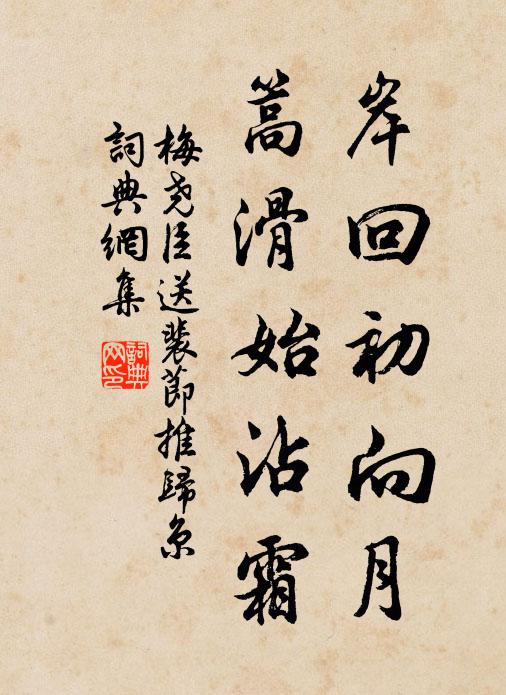 岸回初向月
篙滑始沾霜
梅尧臣送裴節推歸京
詞典網集
詞典
网印